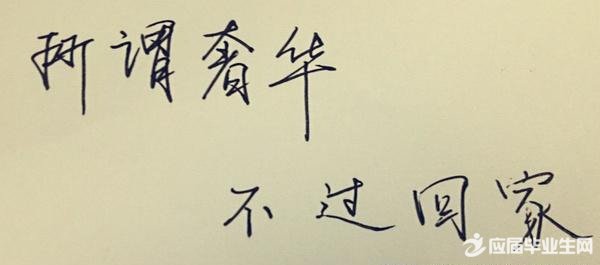 所谓奢华
不过回家
应届毕业生网